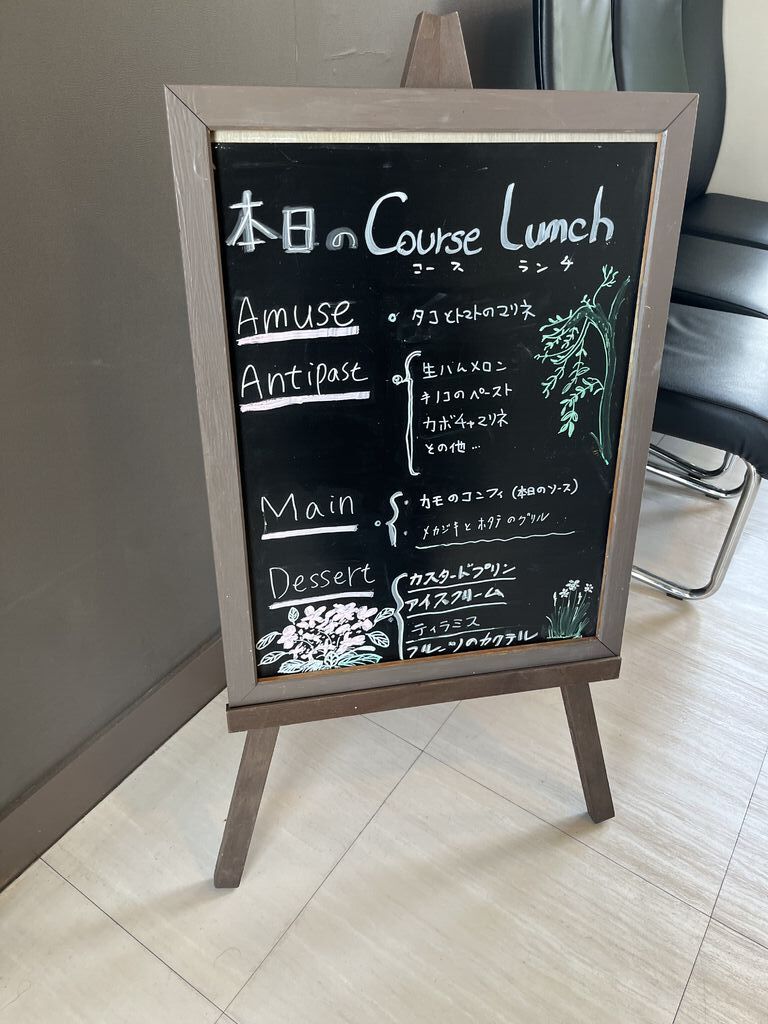 本日の Course Lunch
コース ランチ
Amuse タコとトマトのマリネ
Antipast 生ハムメロン
キノコのペースト
カボチャマリネ
その他...
Main カモのコンフィ (本日のソース)
メカジキとホタテのグリル
Dessert カスタードプリン
アイスクリーム
ティラミス
フルーツのカクテル